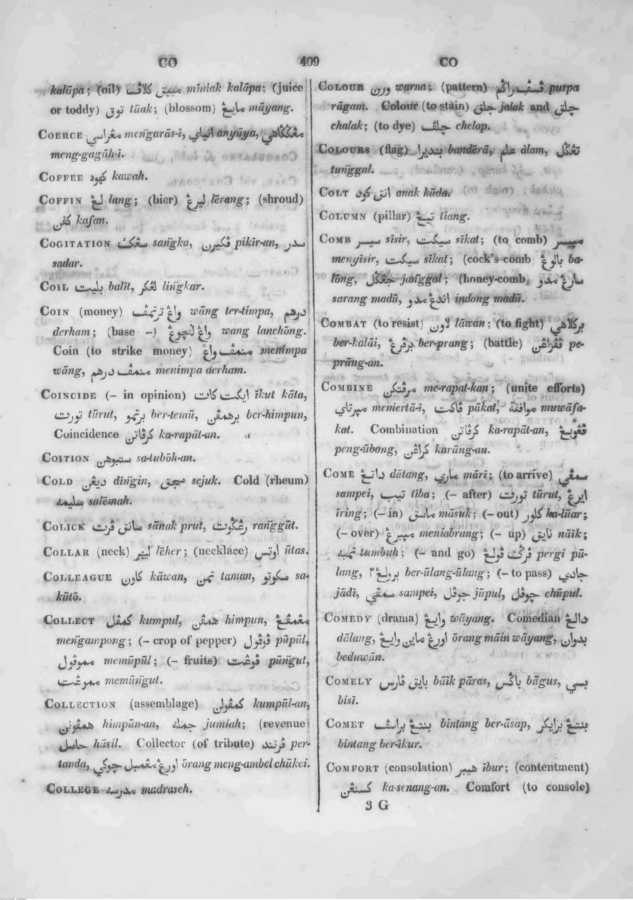 CO
409
CO
kalāpa; (oil) مميق كلاڤ miniak kalāpa; (juice
or toddy) توق tūak; (blossom) مايڠ māyang.
COERCE مغراسي mengarās-i, انيايي anyāya, مڠݢݢاهي
meng-gagāh-i.
COFFEE كهوه kawah.
COFFIN لڠ lang; (bier) ليرڠ lērang; (shroud)
كفن kafan.
COGITATION سڠك sangka, ڤيكيرن pikir-an, سدر
sadar.
COIL بليت balīt, لڠكر lingkar.
COIN (money) واڠ ترتمڤ wāng ter-timpa, درهم
derham; (base –) واڠ لنچوڠ wang lanchōng.
Coin (to strike money) منمڤ واڠ menimpa
wāng, منمڤ درهم menimpa derham.
COINCIDE (– in opinion) ايكت كات īkut kāta,
تورت tūrut, برتمو ber-temū, برهمڤن ber-himpun,
Coincidence كرڤاتن ka-rapāt-an.
COITION ستبوهن sa-tubōh-an.
COLD ديڠن dingin, سجق sejuk. Cold (rheum)
سليمه salēmah.
COLICK سانق ڤرت sānak prut, رڠݢوت ranggūt.
COLLAR (neck) ليهر lēher; (necklace) اوتس ūtas.
COLLEAGUE كاون kāwan, تمن taman, سكوتو sa-
kūtō.
COLLECT كمڤل kumpul, همڤن himpun, مڠمڤڠ
mengampong; (– crop of pepper) ڤوڤول pūpūl,
مموڤول memūpūl; (– fruits) ڤوڠت pūngut,
مموڠت memūngut.
COLLECTION (assemblage) كمڤولن kumpūl-an,
همڤونن himpūn-an, جمله jumlah; (revenue
حاصل hāsil. Collector (of tribute) ڤرتند per-
tanda, اورڠ مڠمبل چوكي ōrang meng-ambel chūkei.
COLLEGE مدرسه madraseh.
COLOUR ورن warna; (pattern) ڤسڤ راڬم puspa
rāgam. Colour (to stain) جلق jalak and چلق
chalak; (to dye) چلڤ chelap.
COLOURS (flag) بنديرا banderā, علم ālam, تڠݢل
tunggal.
COLT انق كود anak kūda.
COLUMN (pillar) تيڠ tiang.
COMB سيسر sīsir, سيكت sīkat; (to comb) ميسر
menyisir, سيكت sikat; (cock's comb بالوڠ ba-
lōng, جڠݢل janggal; (honey-comb سارڠ مدو
sarang madū, اندڠ مدو indong madū.
COMBAT (to resist) لاون lāwan; (to fight) بركلاهي
ber-kalāi, برڤرڠ ber-prang; (battle) ڤڤراڠن pe-
prāng-an.
COMBINE مرڤتكن me-rapat-kan; (unite efforts)
ميرتاي meniertā-i, ڤاكت pākat, موافقة muwāfa-
kat. Combination كرڤاتن ka-rapāt-an, ڤڠوبڠ
peng-ūbong, كراڠن karāng-an.
COME داتڠ dātang, ماري māri; (to arrive) سمڤي
sampei, تيب tība; (– after) تورت tūrut, ايرڠ
īring; (– in) ماسق māsuk; (– out) كلور ka-lūar;
(– over) ميبرڠ meniabrang; (– up) نايق nāik;
تمبه tumbuh; (– and go) ڤرڬي ڤولڠ pergi pū-
lang, براولڠ٢ ber-ūlang-ūlang; (– to pass) جادي
jādi, سمڤي sampei, جوڤل jūpul, چوڤل chūpul.
COMEDY (drama) وايڠ wāyang. Comedian دالڠ
dālang, اورڠ ماين وايڠ ōrang māin wāyang, بدوان
beduwān.
COMELY بايق ڤارس bāik pāras, باڬس bāgus, بسي
bisi.
COMET بنتڠ براسڤ bintang ber-āsap, بنتڠ برايكر
bintang ber-īkur.
COMFORT (consolation) هيبر ībur; (contentment)
كسنڠن ka-senang-an. Comfort (to console)
3 G